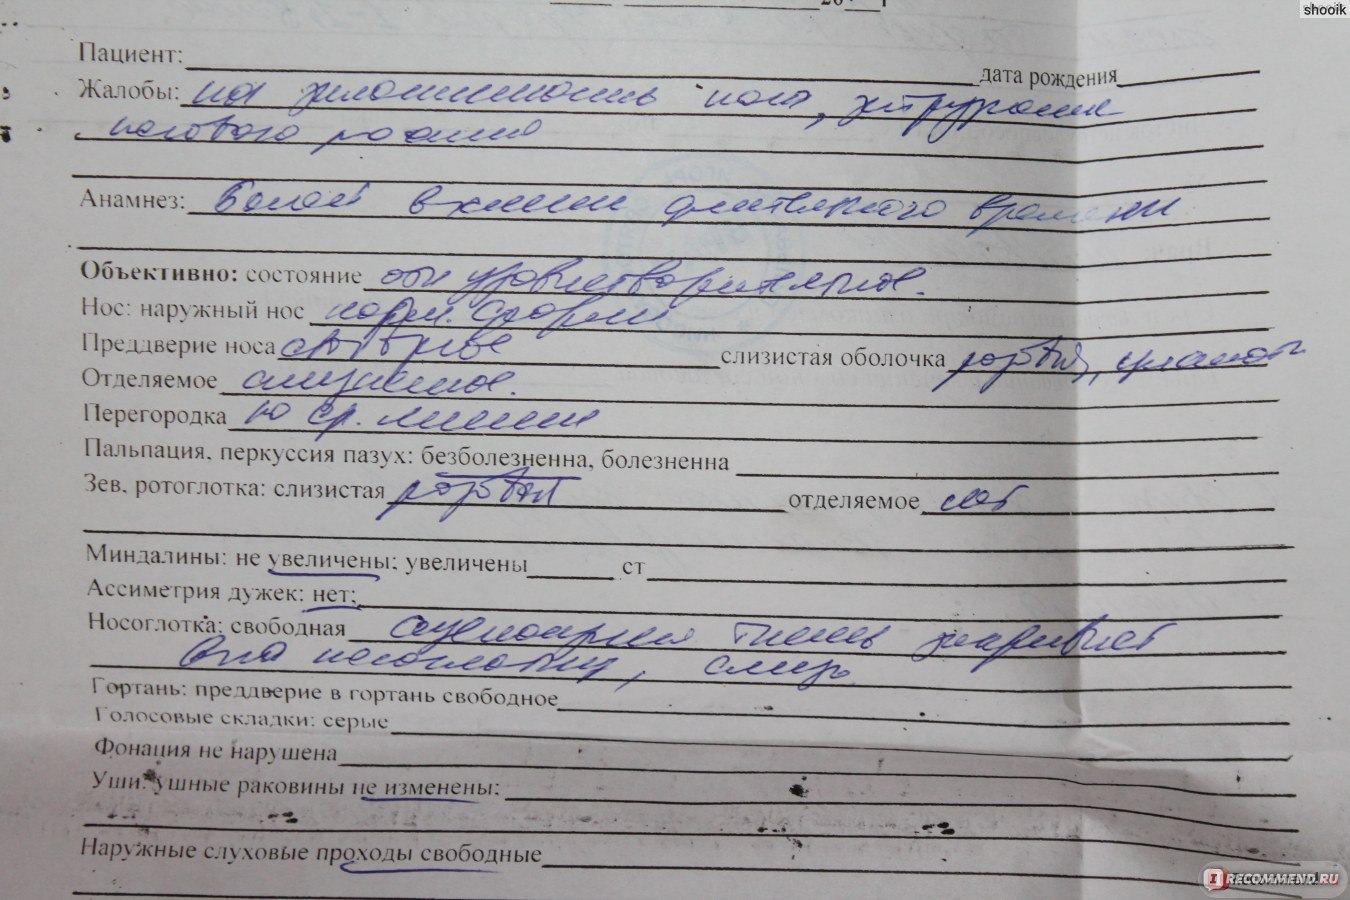 shooik
20 г
Пациент: дата рождения
Жалобы: на заложенность носа, затруднение
носового дыхания
Анамнез: Болеет в течении длительного времени
Объективно: состояние удовлетворительное.
Нос: наружный нос норм. формы
Преддверие носа свободное слизистая оболочка розовая,
Отделяемое слизистое.
Перегородка по ср. линии
Пальпация, перкуссия пазух: безболезненна, болезненна
Зев, ротоглотка: слизистая розовая отделяемое нет
Миндалины: не увеличены; увеличены ст
Ассиметрия дужек: нет;
Носоглотка: свободная аденоидная ткань закрывает
носоглотки, слизь
Гортань: преддверие в гортань свободное
Голосовые складки: серые
Фонация не нарушена
Уши: ушные раковины не изменены;
Наружные слуховые проходы свободные
IRECOMMEND.RU